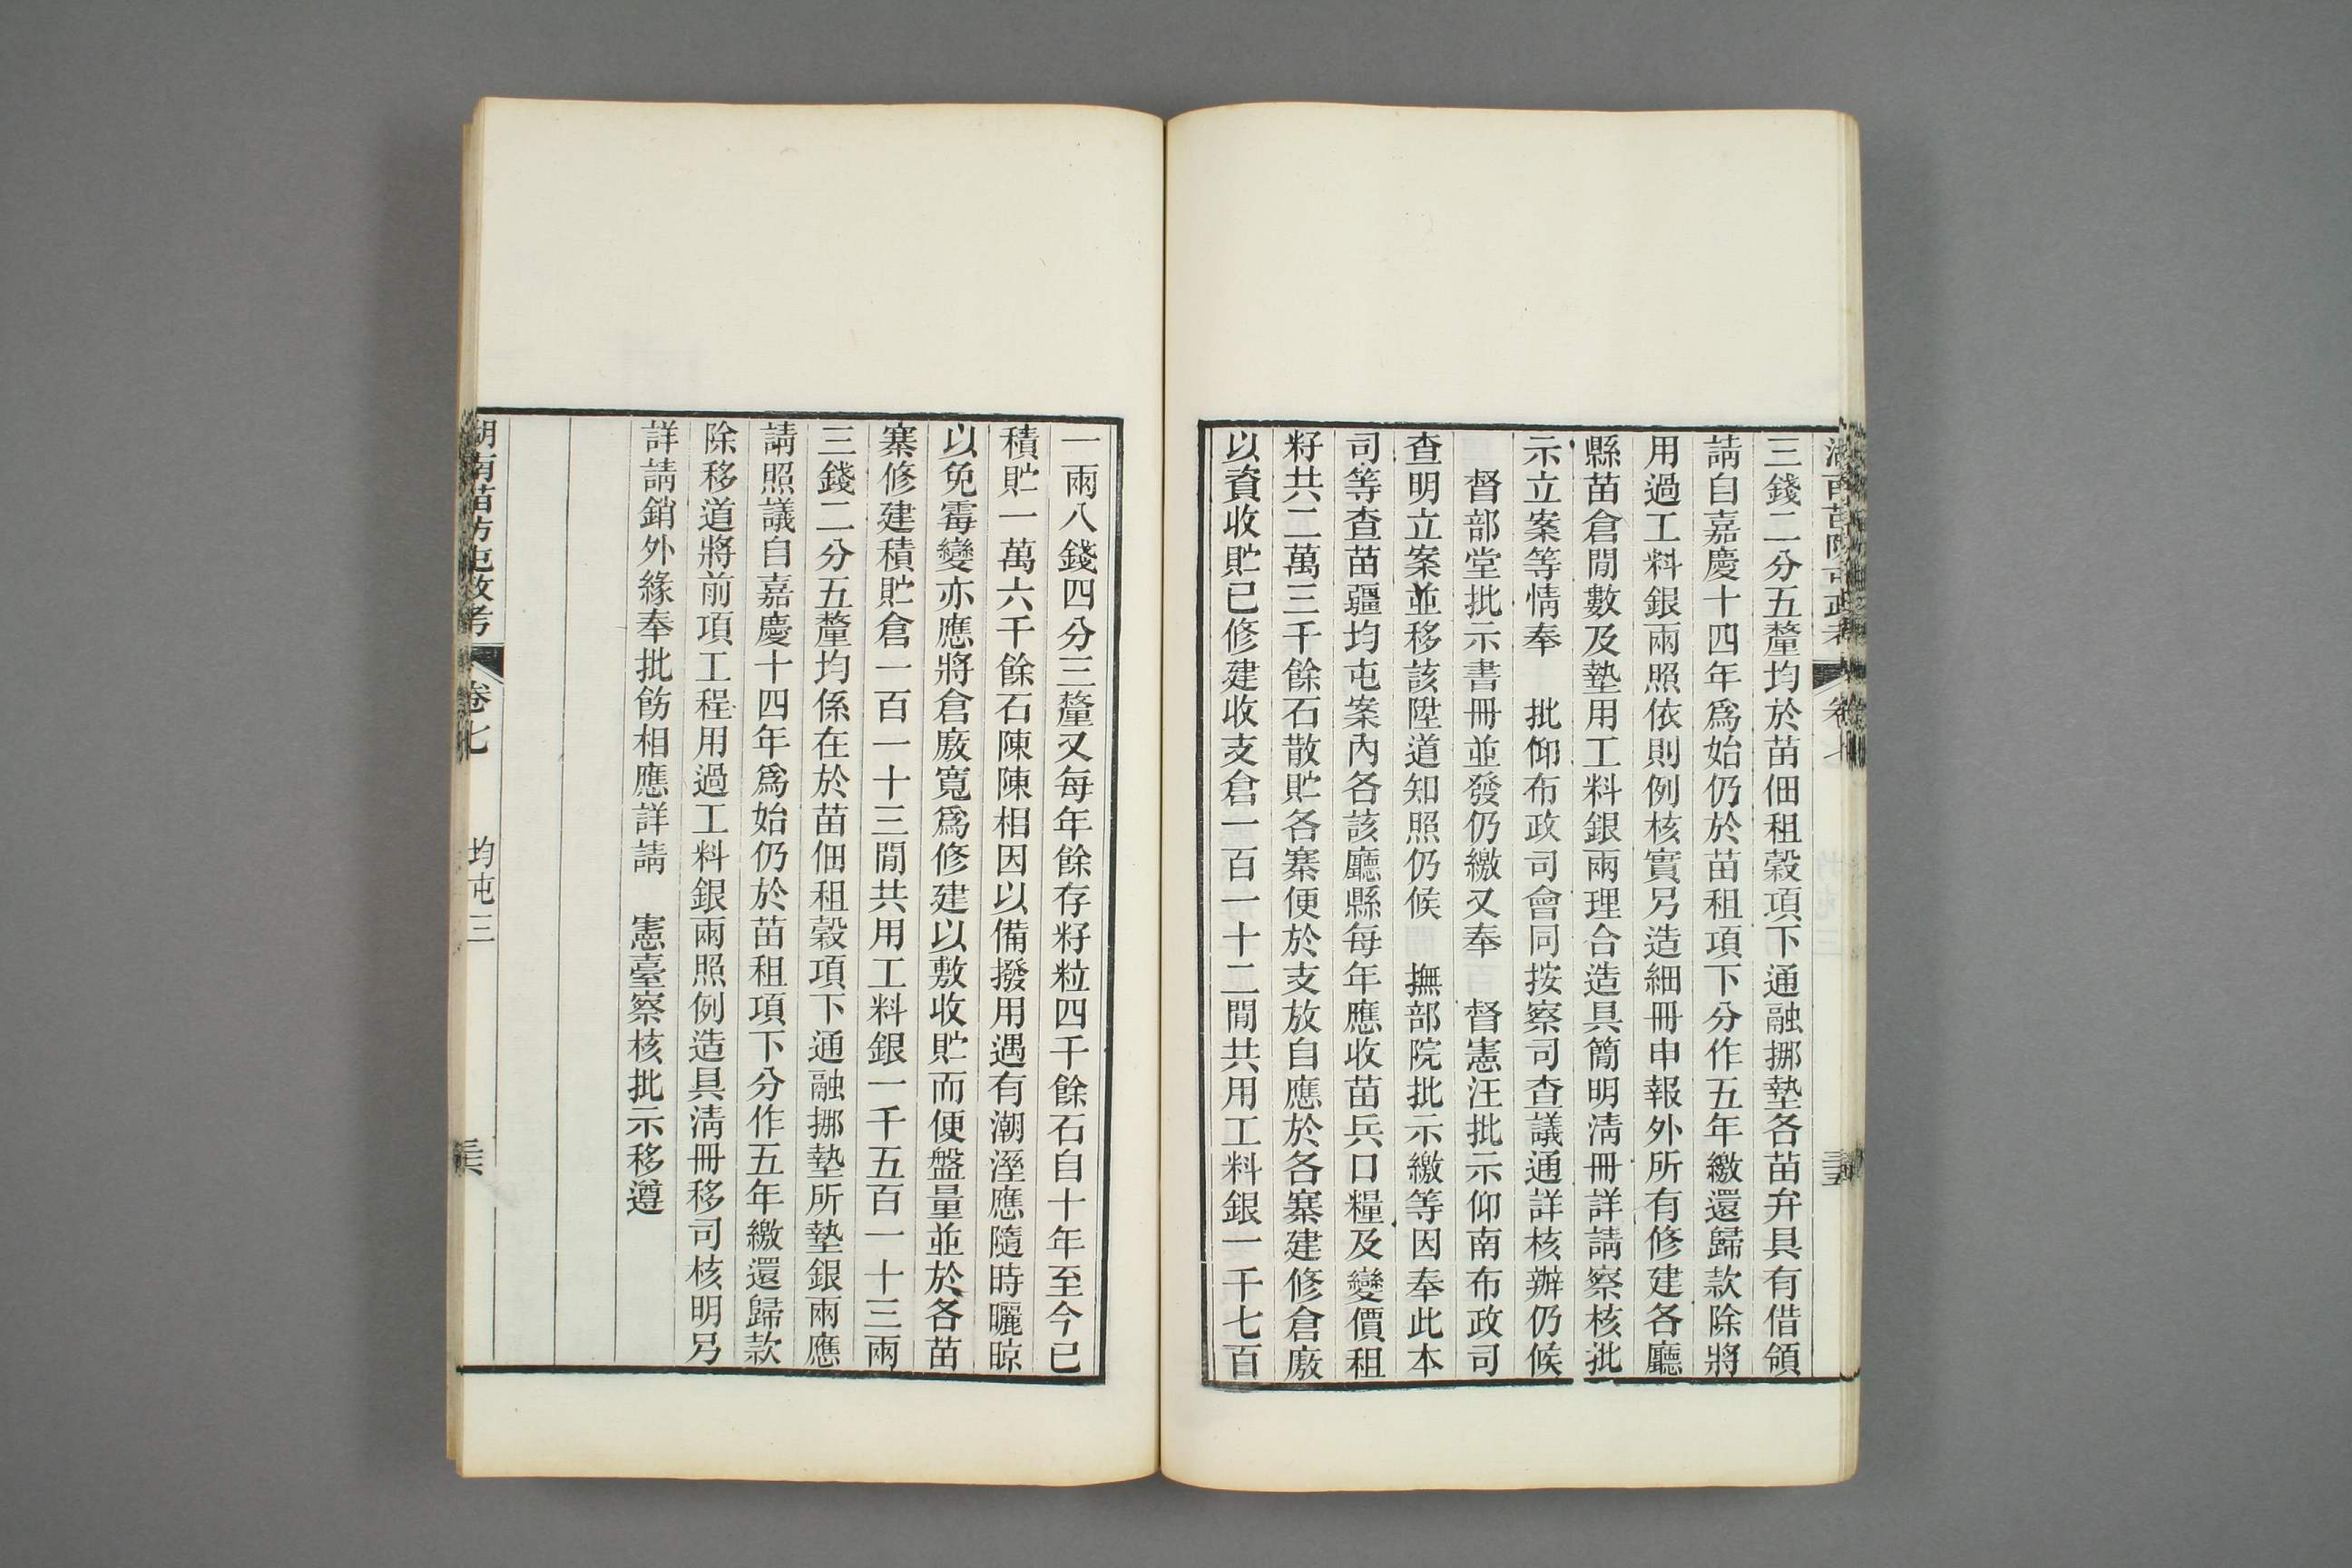 三錢二分五釐均於苗佃租穀項下通融挪墊各苗弁具有借領
請自嘉慶十四年爲始仍於苗租項下分作五年繳還歸款除將
用過工料銀兩照依則例核實另造細冊申報外所有修建各廳
縣苗倉間數及墊用工料銀兩理合造具簡明清冊詳請察核批
示立案等情奉　批仰布政司會同按察司查議通詳核辦仍候
督部堂批示書冊並發仍繳又奉　督憲汪批示仰南布政司
查明立案並移該陞道知照仍候　撫部院批示繳等因奉此本
司等查苗疆均屯案內各該廳縣每年應收苗兵口糧及變價租
籽共二萬三千餘石散貯各寨便於支放自應於各寨建修倉廒
以資收貯已修建收支倉一百一十二間共用工料銀一千七百
一兩八錢四分三釐又每年餘存籽粒四千餘石自十年至今已
積貯一萬六千餘石陳陳相因以備撥用遇有潮溼應隨時曬晾
以免霉變亦應將倉廒寬爲修建以敷收貯而便盤量並於各苗
寨修建積貯倉一百一十三間共用工料銀一千五百一十三兩
三錢二分五釐均係在於苗佃租穀項下通融挪墊所墊銀兩應
請照議自嘉慶十四年爲始仍於苗租項下分作五年繳還歸款
除移道將前項工程用過工料銀兩照例造具清冊移司核明另
詳請銷外緣奉批飭相應詳請　憲臺察核批示移遵
湖南苗防屯政考　卷七　均屯三